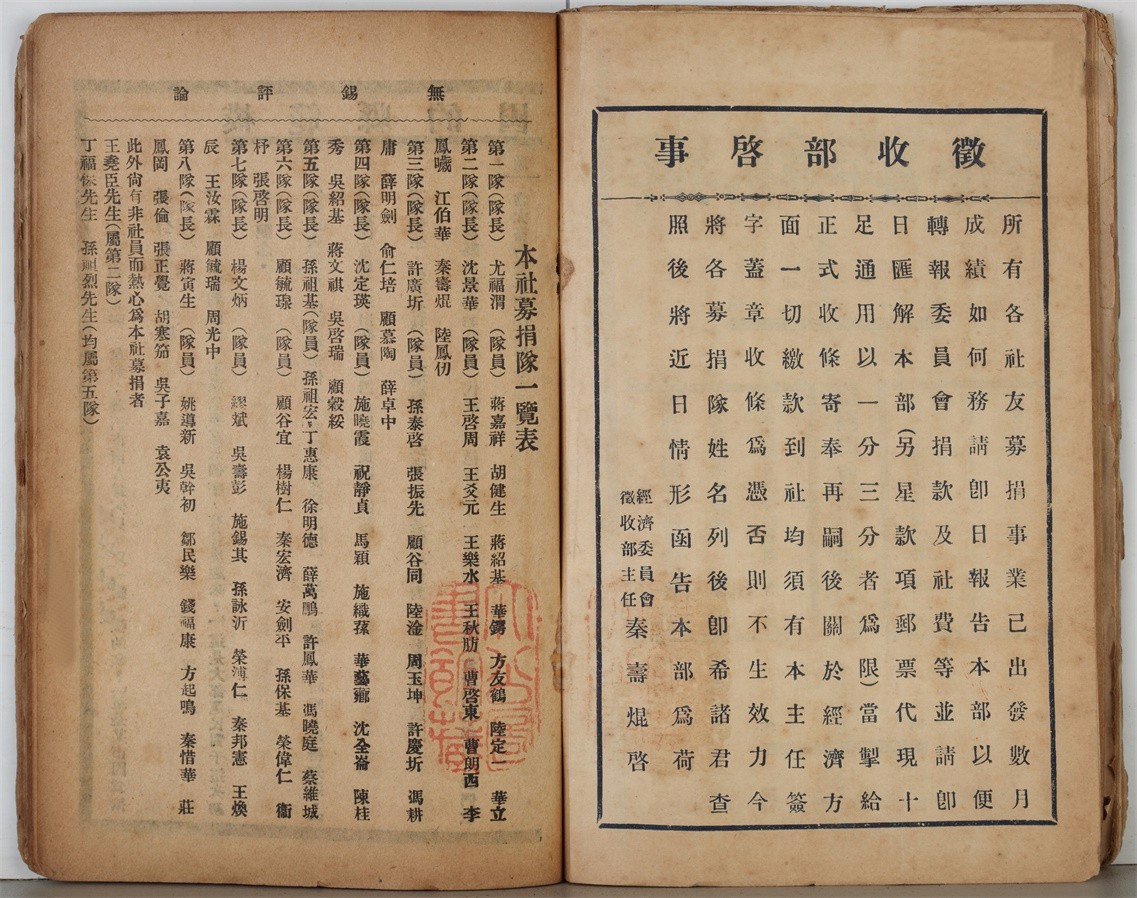 徵收部啓事
所有各社友募捐事業已出發數月
成績如何務請卽日報告本部以便
轉報委員會捐款及社費等並請卽
日匯解本部(另星款項郵票代現十
足通用以一分三分者爲限)當掣給
正式收條寄奉再嗣後關於經濟方
面一切繳款到社均須有本主任簽
字蓋章收條爲憑否則不生效力今
將各募捐隊姓名列後卽希諸君查
照後將近日情形函告本部爲荷
經濟委員會
徵收部主任
秦壽焜啓
無錫評論
本社募捐隊一覽表
第一隊(隊長) 尤福渭 (隊員) 蔣嘉祥 胡健生 蔣紹基 華鍔 方友鶴 陸定一 華立
鳳曦 江伯華 秦壽焜 陸鳳仞
第二隊(隊長) 沈景華 (隊員) 王啓周 王爻元 王樂水 王秋肪 曹啓東 曹朗西 李
第三隊(隊長) 許廣圻 (隊員) 孫泰啓 張振先 顧谷同 陸淦 周玉坤 許慶圻 馮耕
庸 薛明劍 俞仁培 顧慕陶 薛卓中
第四隊(隊長) 沈定瑛 (隊員) 施曉霞 祝靜貞 馬穎 施織蓀 華藝薌 沈全崙 陳桂
秀 吳紹基 蔣文祺 吳啓瑞 顧穀綏
第五隊(隊長) 孫祖基(隊員) 孫祖宏 丁惠康 徐明德 薛萬鵬 許鳳華 馮曉庭 蔡維城
第六隊(隊長) 顧毓瑔 (隊員) 顧谷宜 楊樹仁 秦宏濟 安劍平 孫保基 榮偉仁 衞
杼 張啓明
第七隊(隊長) 楊文炳 (隊員) 繆斌 吳壽彭 施錫其 孫詠沂 榮溥仁 秦邦憲 王煥
辰 王汝霖 顧毓瑞 周光中
第八隊(隊長) 蔣寅生 (隊員) 姚導新 吳幹初 鄒民樂 錢福康 方起鳴 秦惜華 莊
鳳岡 張倫 張正覺 胡寒笳 吳子嘉 袁公夷
此外尙有非社員而熱心爲本社募捐者
王堯臣先生(屬第二隊)
丁福保先生 孫祖烈先生(均屬第五隊)